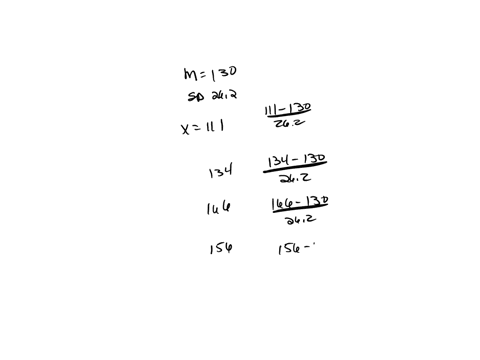 M = 130
SD 26.2
x = 111 111 - 130 / 26.2
134 134 - 130 / 26.2
166 166 - 130 / 26.2
156 156 -